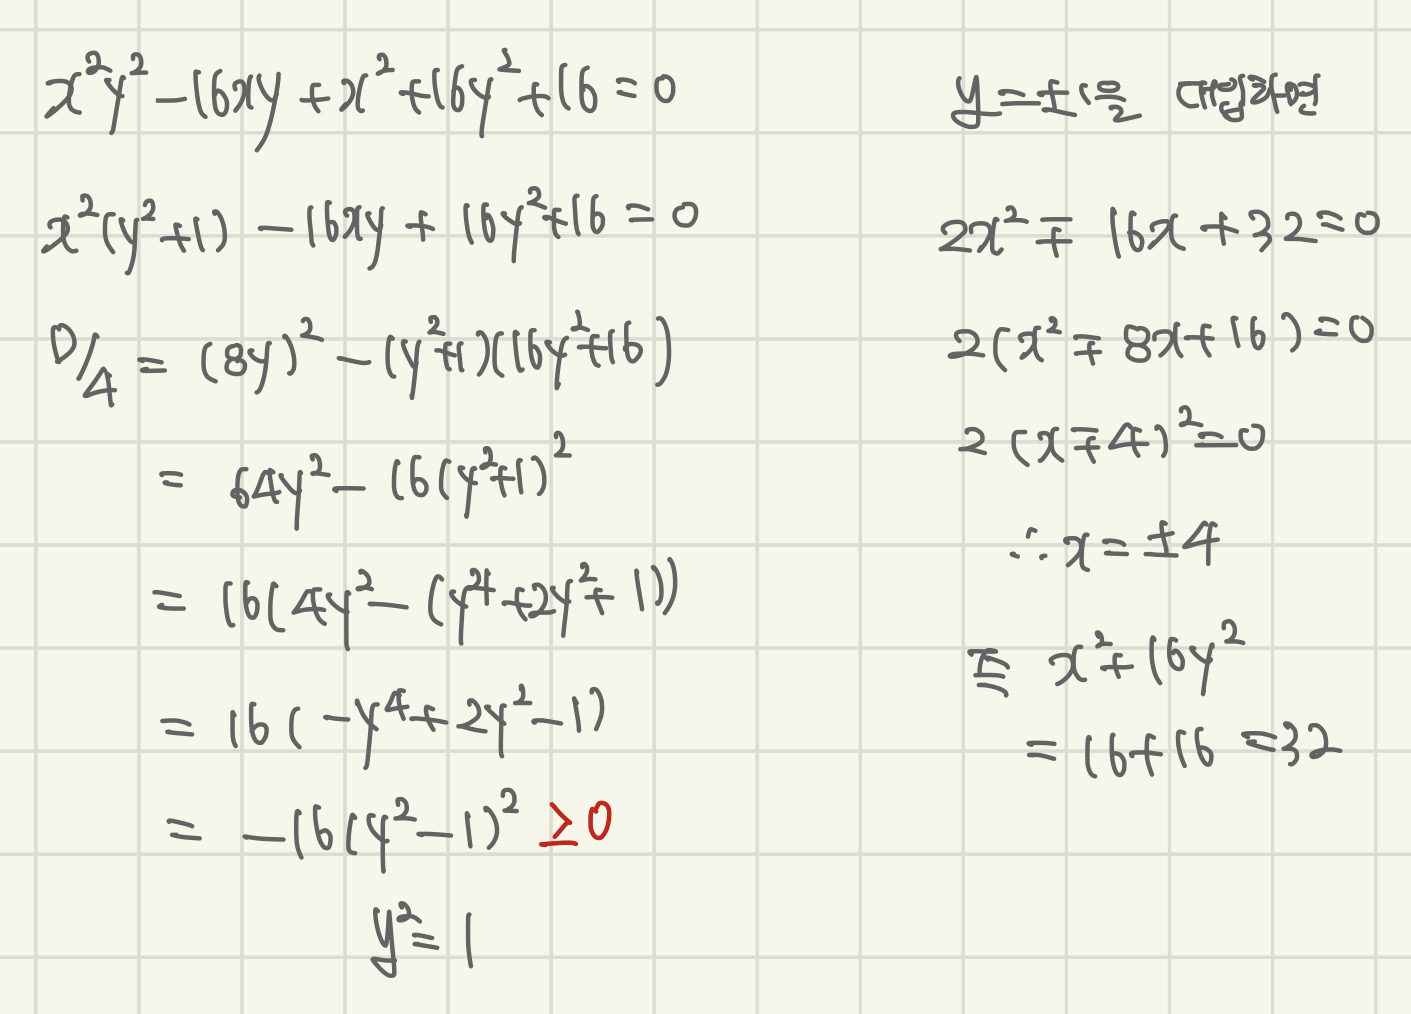 x²y² - 16xy + x² + 16y² + 16 = 0
x²(y²+1) - 16xy + 16y²+16 = 0
D/4 = (8y)² - (y²+1)(16y²+16)
= 64y² - 16(y²+1)²
= 16(4y² - (y⁴+2y²+1))
= 16(-y⁴+2y²-1)
= -16(y²-1)² ≥0
y² = 1
y = ±1을 대입하면
2x² ∓ 16x + 32 = 0
2(x² ∓ 8x + 16) = 0
2(x∓4)² = 0
∴ x = ±4
x² + 16y²
= 16+16 = 32